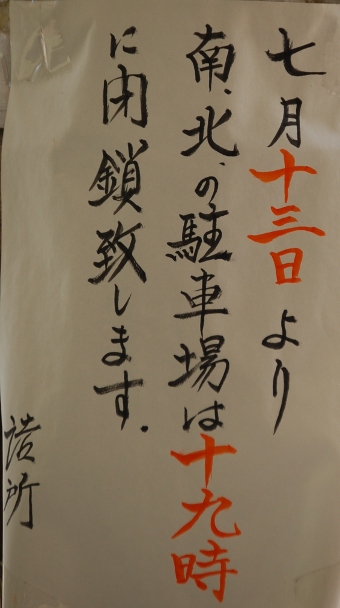 七月十三日より
南、北、の駐車場は十九時
に閉鎖致します.
詰所